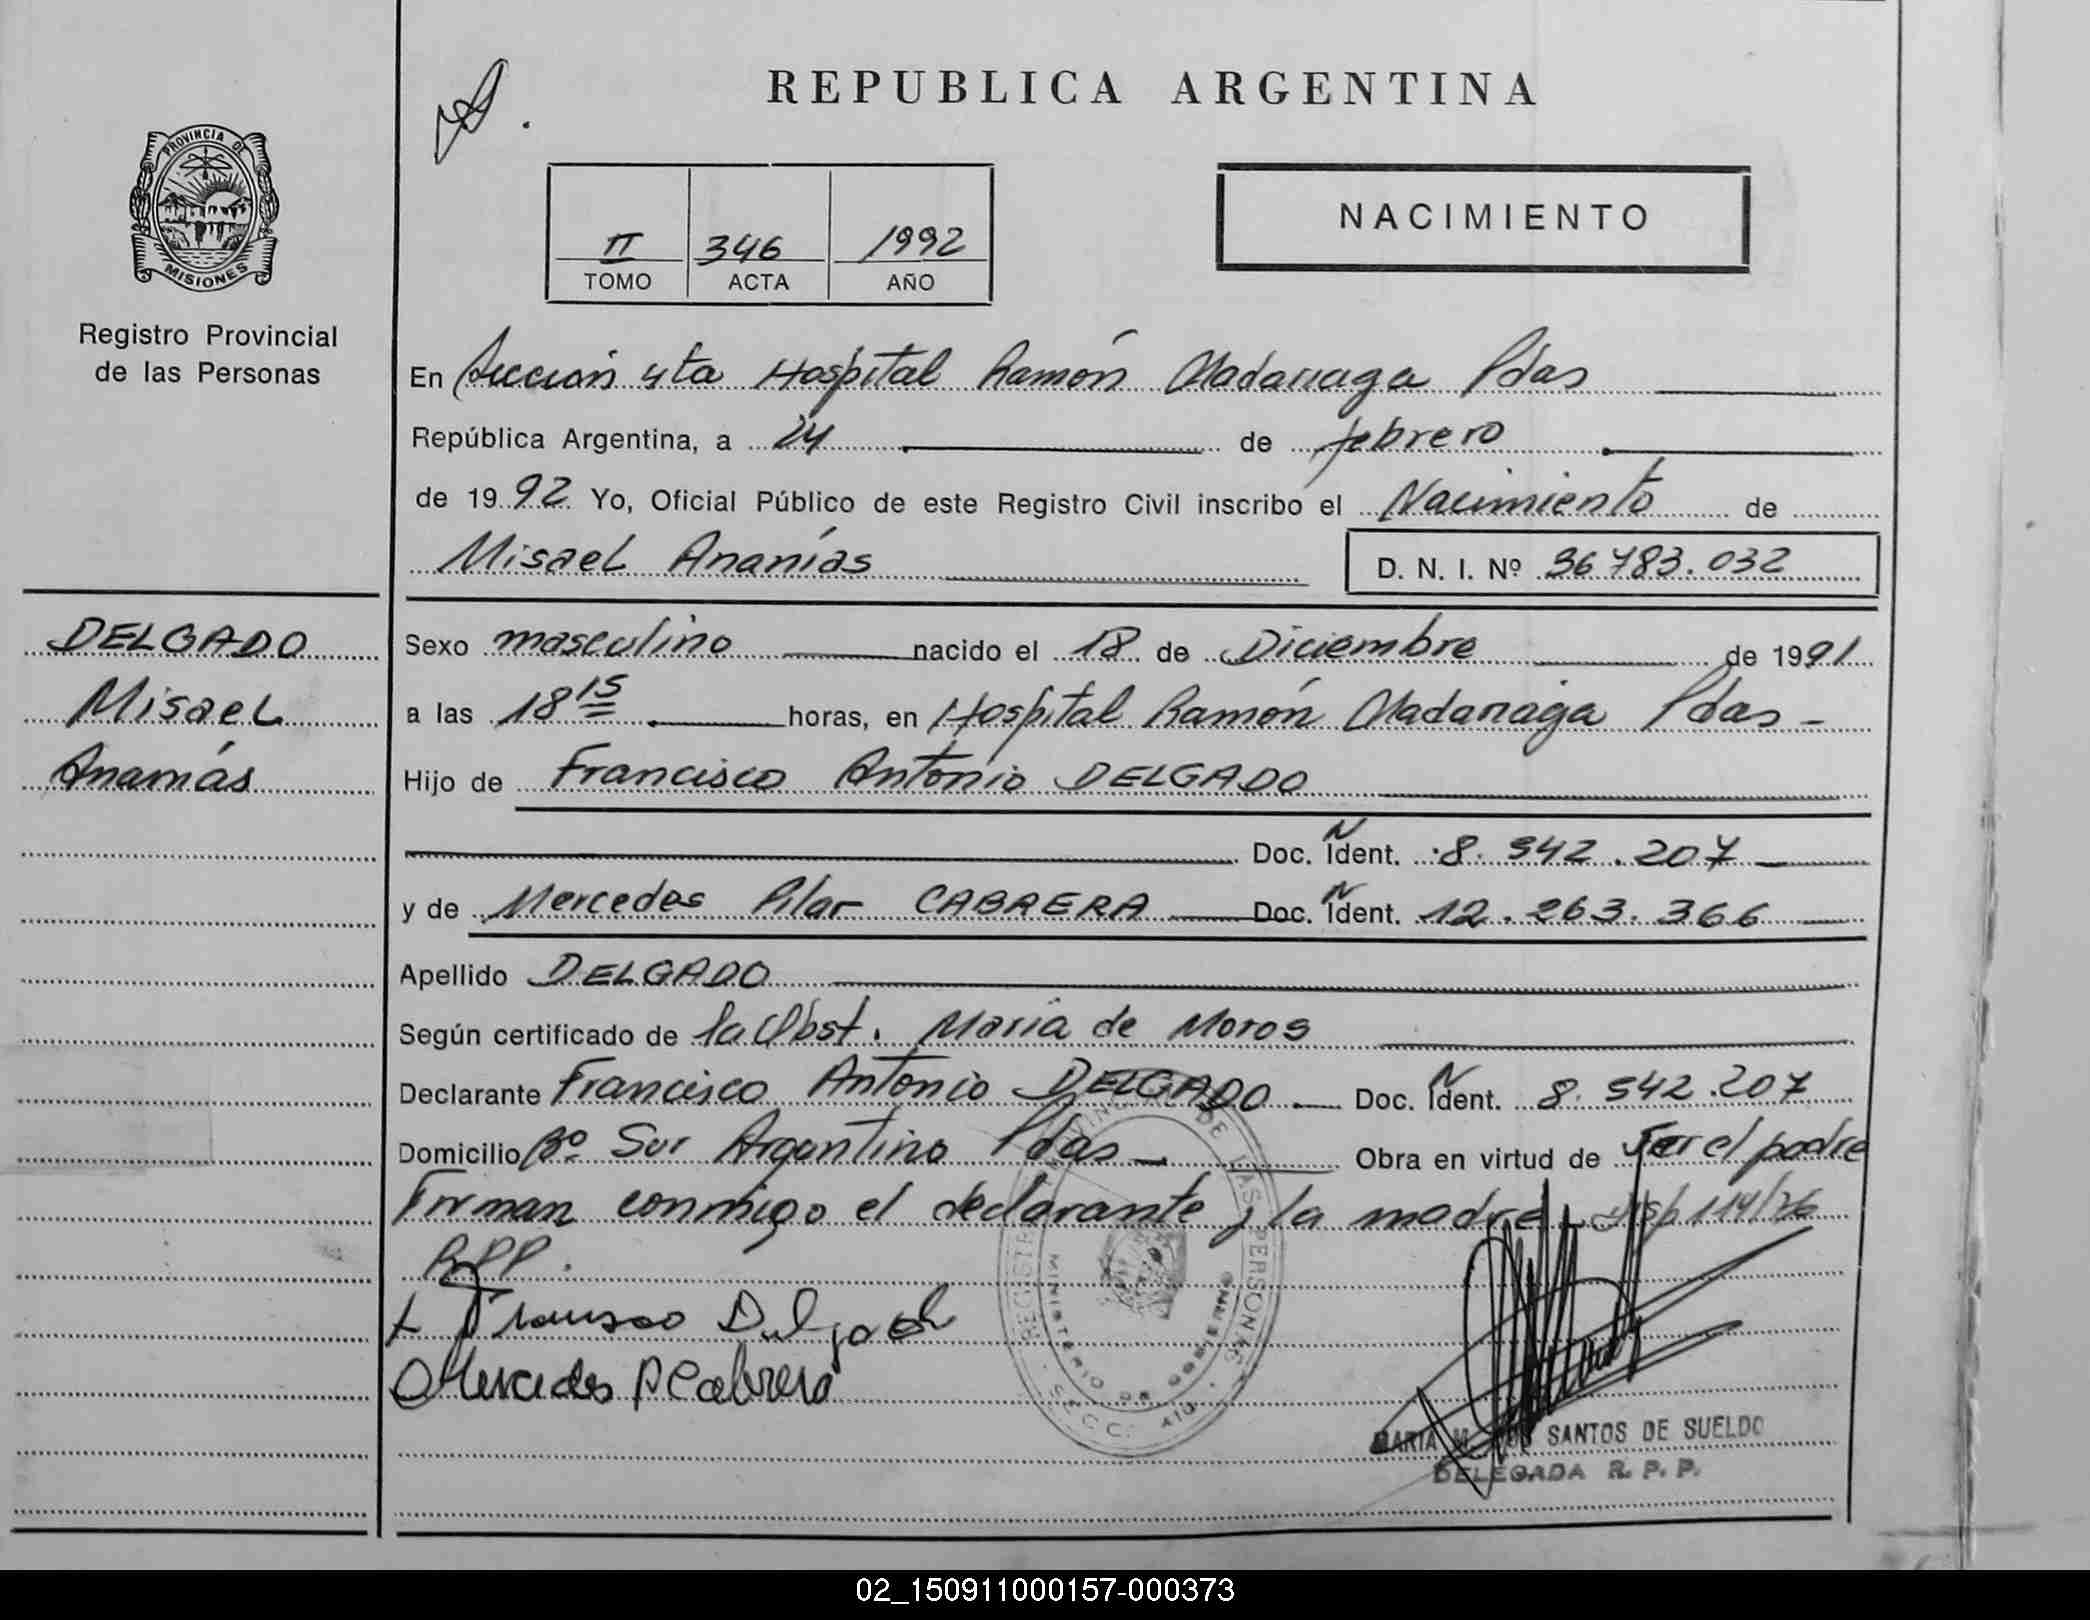 REPUBLICA ARGENTINA
PROVINCIA DE
MISIONES
Registro Provincial
de las Personas
II 346 1992
TOMO ACTA AÑO
NACIMIENTO
En Sección 4ta Hospital Ramón Madariaga Pdas
República Argentina, a 24 de febrero
de 1992 Yo, Oficial Público de este Registro Civil inscribo el Nacimiento de
Misael Ananías D. N. I. Nº 36783.032
DELGADO
Misael
Ananías
Sexo masculino nacido el 18 de Diciembre de 1991
a las 18 15 horas, en Hospital Ramón Madariaga Pdas -
Hijo de Francisco Antonio DELGADO
Doc. Ident. N 8.542.207
y de Mercedes Pilar CABRERA Doc. Ident. N 12.263.366
Apellido DELGADO
Según certificado de la Obst. María de Moros
Declarante Francisco Antonio DELGADO Doc. Ident. N 8.542.207
Domicilio Bº Sur Argentino Pdas Obra en virtud de Ser el padre
Firman conmigo el declarante y la madre Disp 114/76
RPP.
x Francisco Delgado
Mercedes P Cabrera
REGISTRO PROVINCIAL DE LAS PERSONAS
MINISTERIO DE GOBIERNO
SECC. 4ta.
MARIA M. SANTOS DE SUELDO
DELEGADA R. P. P.
02_150911000157-000373